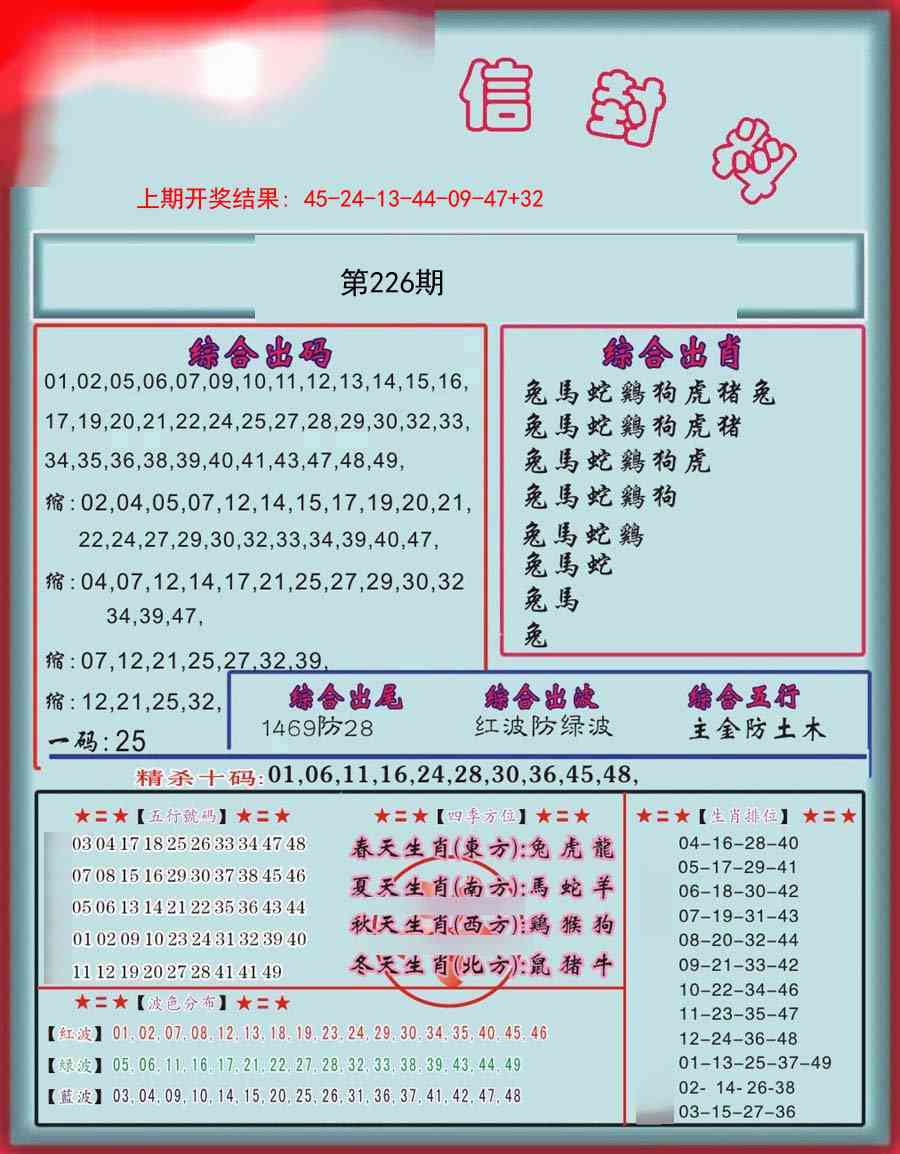 信封料
上期开奖结果: 45-24-13-44-09-47+32
第226期
综合出码
01,02,05,06,07,09,10,11,12,13,14,15,16,
17,19,20,21,22,24,25,27,28,29,30,32,33,
34,35,36,38,39,40,41,43,47,48,49,
缩:02,04,05,07,12,14,15,17,19,20,21,
22,24,27,29,30,32,33,34,39,40,47,
缩:04,07,12,14,17,21,25,27,29,30,32
34,39,47,
缩:07,12,21,25,27,32,39,
缩:12,21,25,32,
一码:25
综合出肖
兔馬蛇鷄狗虎猪兔
兔馬蛇鷄狗虎猪
兔馬蛇鷄狗虎
兔馬蛇鷄狗
兔馬蛇鷄
兔馬蛇
兔馬
兔
综合出尾
1469防28
综合出波
红波防绿波
综合五行
主金防土木
精杀十码:01,06,11,16,24,28,30,36,45,48,
★=★【五行號碼】★=★
03 04 17 18 25 26 33 34 47 48
07 08 15 16 29 30 37 38 45 46
05 06 13 14 21 22 35 36 43 44
01 02 09 10 23 24 31 32 39 40
11 12 19 20 27 28 41 41 49
★=★【四季方位】★=★
春天生肖(東方):兔虎龍
夏天生肖(南方):馬蛇羊
秋天生肖(西方):鷄猴狗
冬天生肖(北方):鼠猪牛
★=★【生肖排位】★=★
04-16-28-40
05-17-29-41
06-18-30-42
07-19-31-43
08-20-32-44
09-21-33-42
10-22-34-46
11-23-35-47
12-24-36-48
01-13-25-37-49
02- 14- 26-38
03-15-27-36
★=★【波色分布】★=★
【紅波】01,02,07,08,12,13,18,19,23,24,29,30,34,35,40,45,46
【綠波】05,06,11,16,17,21,22,27,28,32,33,38,39,43,44,49
【藍波】03,04,09,10,14,15,20,25,26,31,36,37,41,42,47,48